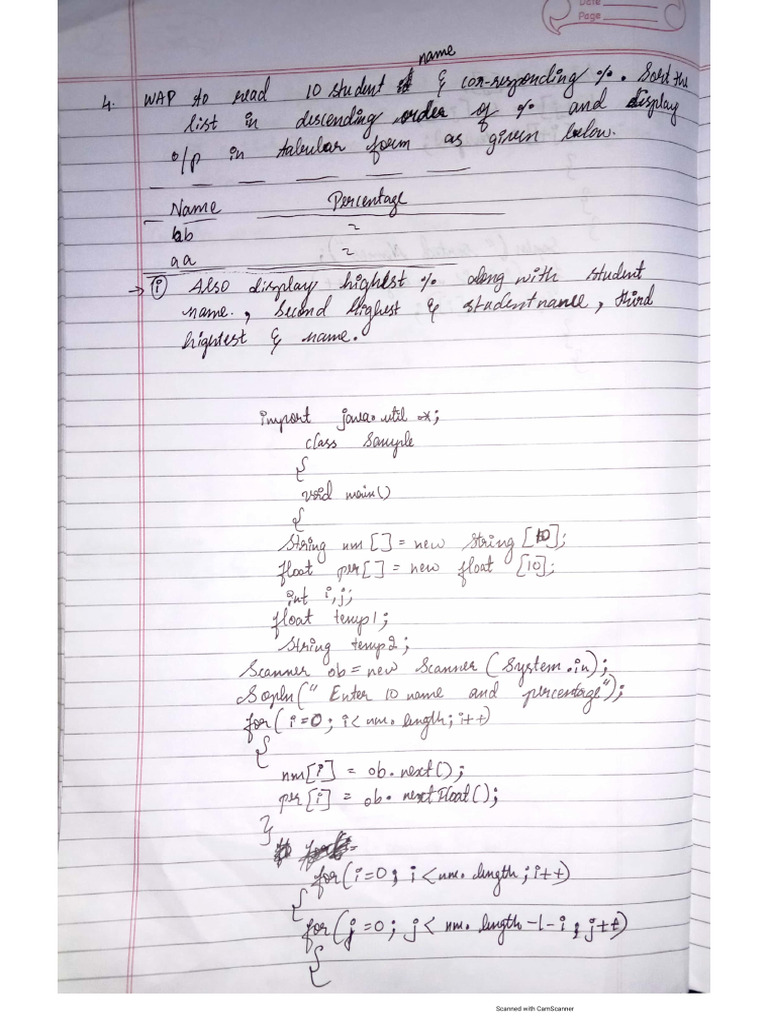 Date
Page
name
4. WAP to read 10 student & cor-responding %. Sort the
list in descending order of % and display
o/p in talcular form as given below.
Name Percentage
bb
aa
→ (i) Also display highest % along with student
name., Second highest & student name, third
highest & name.
import java.util.*;
class Sample
{
void main()
{
String nm[] = new String [10];
float per[] = new float [10];
int i,j;
float temp1;
String temp2;
Scanner ob = new Scanner (System.in);
Sopln(" Enter 10 name and percentage");
for( i=0 ; i< nm. length ; i++)
{
nm[i] = ob.next();
per[i] = ob.nextFloat();
}
for(i=0; i<nm. length; i++)
{
for(j=0; j< nm. length-1-i; j++)
{
Scanned with CamScanner